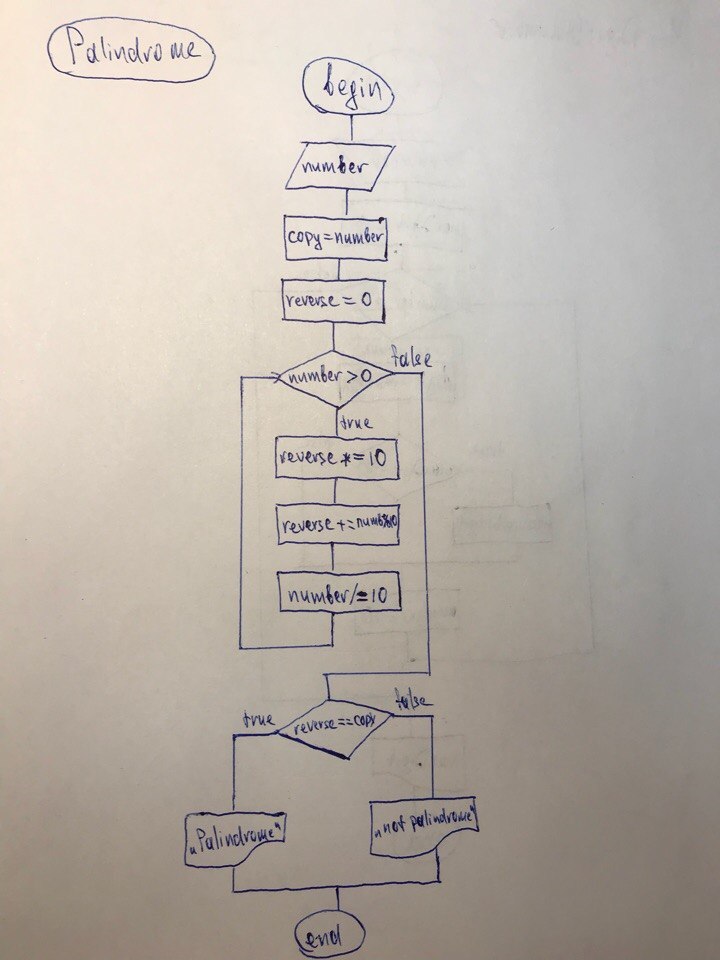 Palindrome
begin
number
copy=number
reverse = 0
number > 0
false
true
reverse *= 10
reverse += numb%10
number /= 10
true
reverse == copy
false
„Palindrome"
„not palindrome"
end